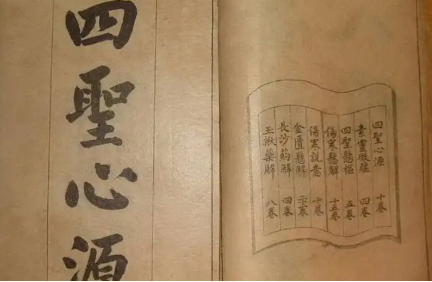 四聖心源
四聖心源 十卷
素靈微蘊 四卷
四聖懸樞 五卷
傷寒懸解 十五卷
傷寒說意 十卷
金匱懸解 卷
長沙葯解 四卷
玉楸藥解 八卷